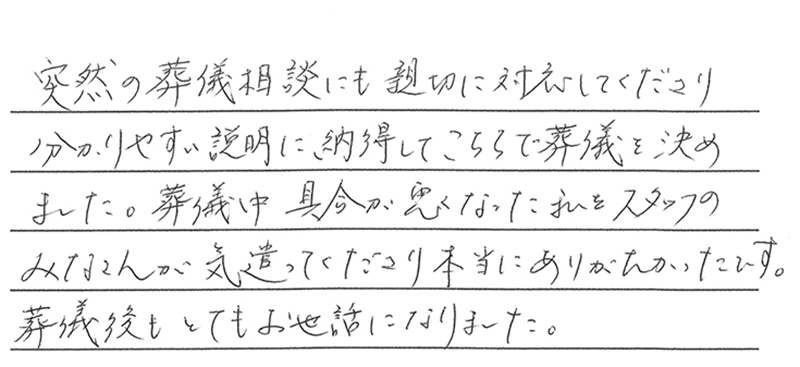 突然の葬儀相談にも親切に対応してくださり
分かりやすい説明に納得してこちらで葬儀を決め
ました。葬儀中 具合が悪くなった私をスタッフの
みなさんが気遣ってくださり本当にありがたかったです。
葬儀後もとてもお世話になりました。